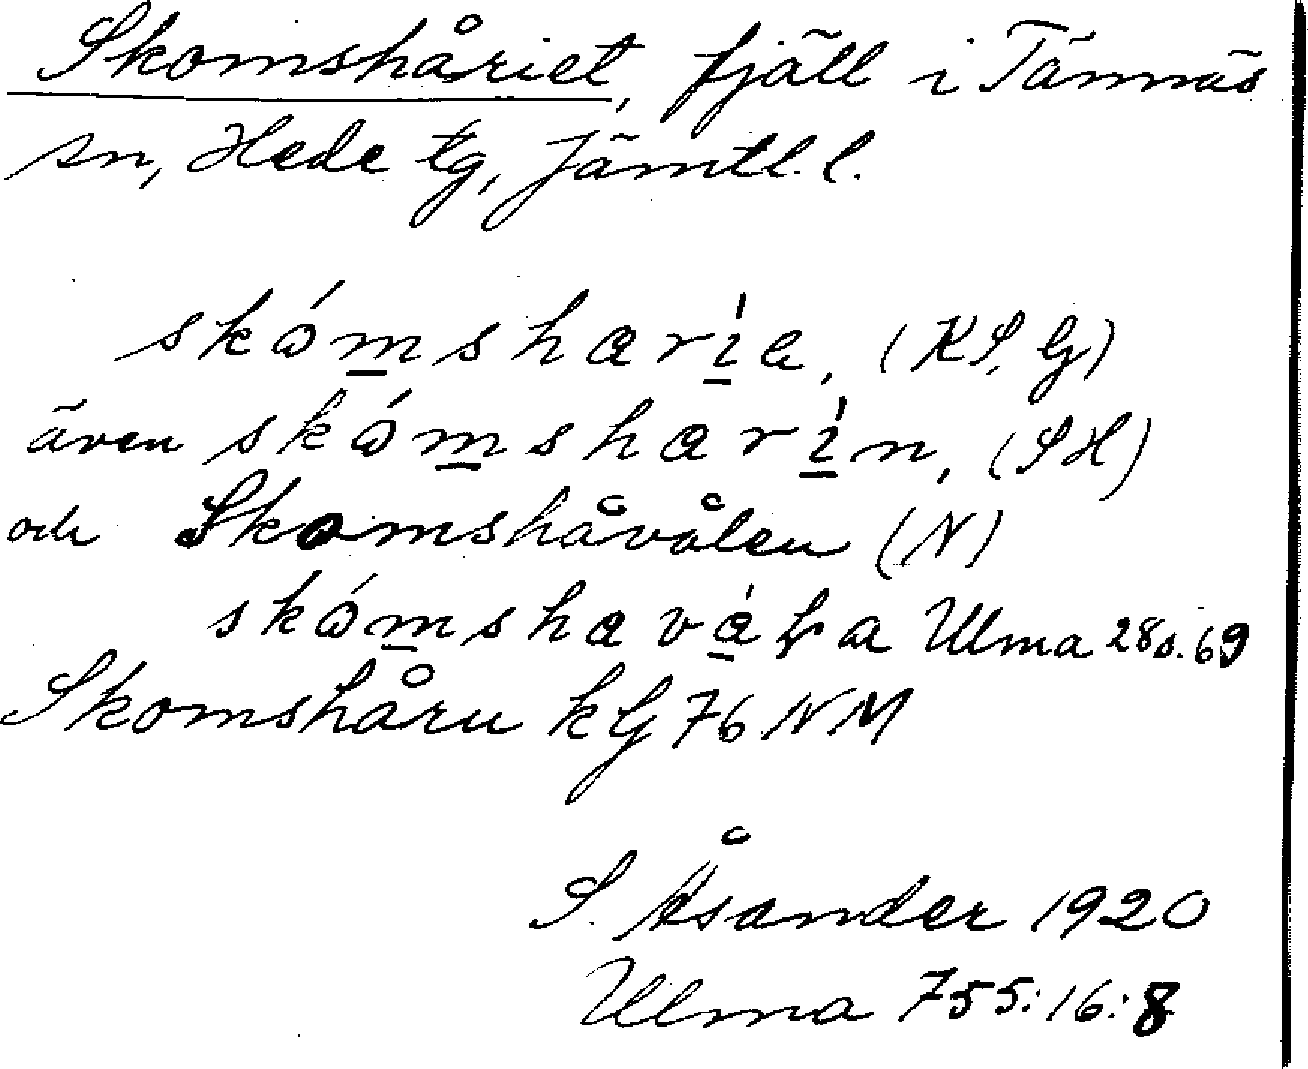 Skomshåriet, fjäll i Tännäs
sn, Hede tg, Jämtl. l.
skómsharia, (KS, G)
även skómsharin, (SH)
och Skomshåvålen (N)
skómshaváḷa Ulma 28 s. 69
Skomshåru kG 76 NM
S. Åsander 1920
Ulma 755:16:8